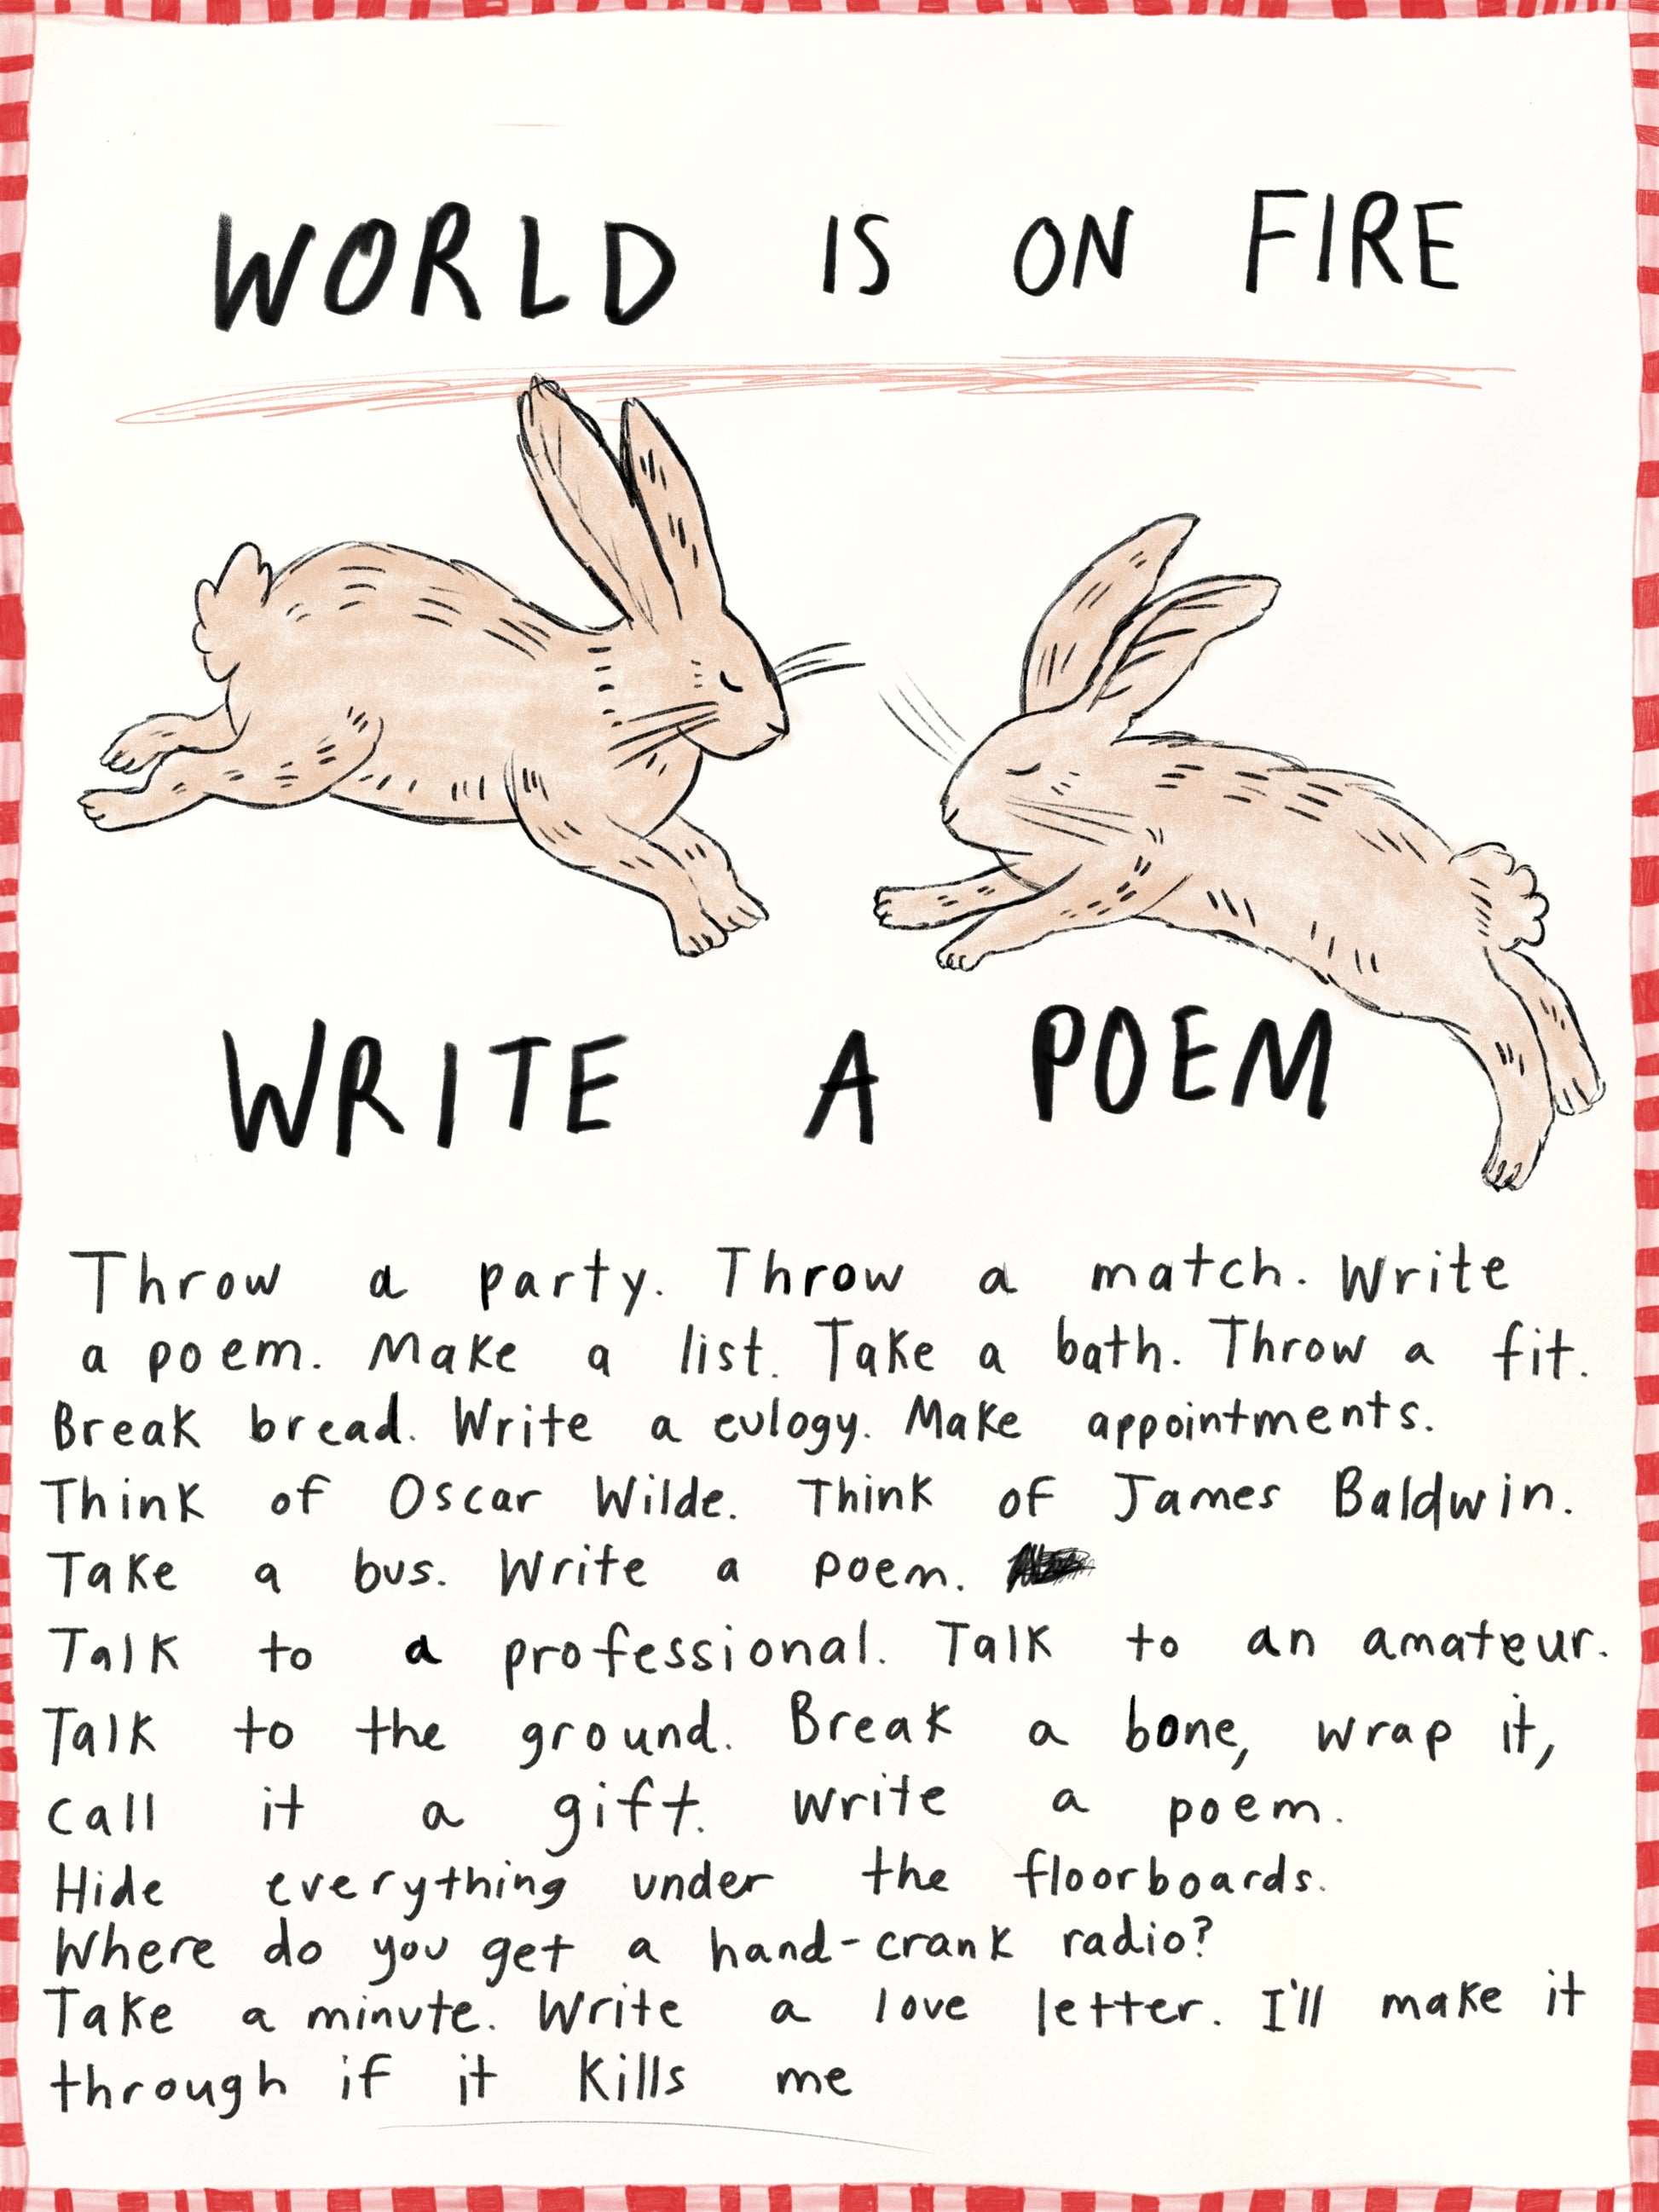 WORLD IS ON FIRE
WRITE A POEM
Throw a party. Throw a match. Write
a poem. Make a list. Take a bath. Throw a fit.
Break bread. Write a eulogy. Make appointments.
Think of Oscar Wilde. Think of James Baldwin.
Take a bus. Write a poem.
Talk to a professional. Talk to an amateur.
Talk to the ground. Break a bone, wrap it,
call it a gift. Write a poem.
Hide everything under the floorboards.
Where do you get a hand-crank radio?
Take a minute. Write a love letter. I'll make it
through if it kills me